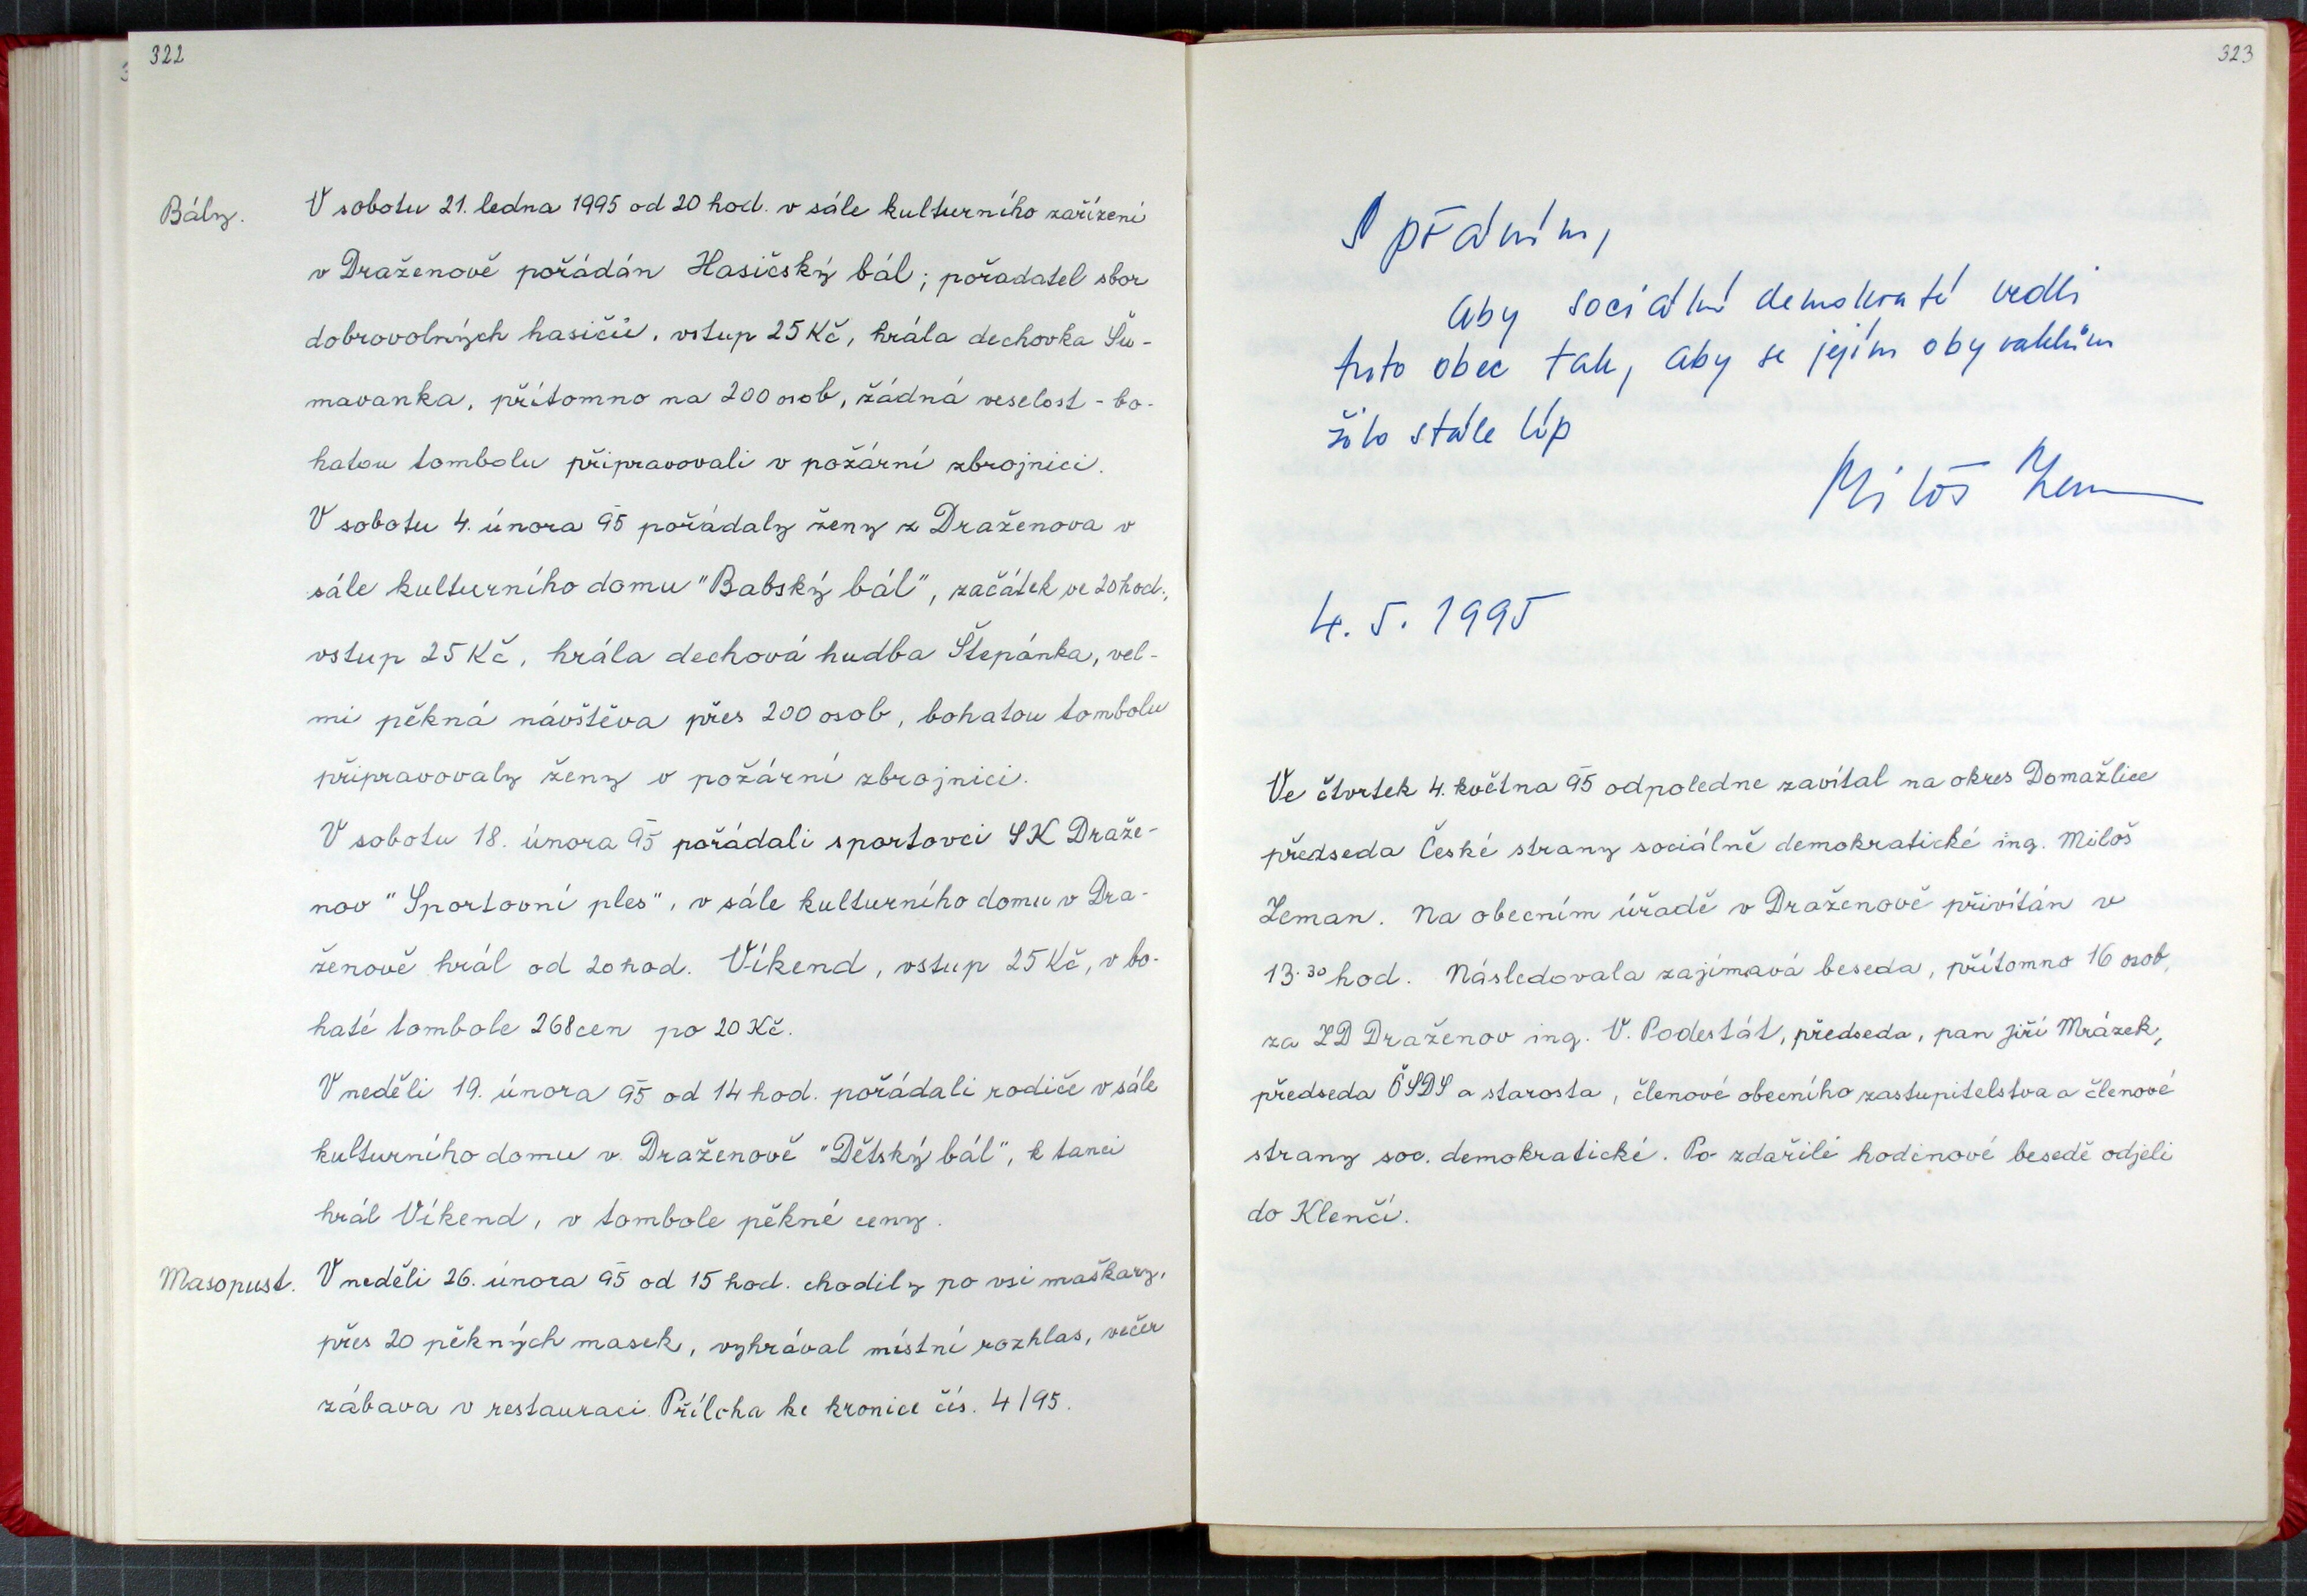 322
Bály.
V sobotu 21. ledna 1995 od 20 hod. v sále kulturního zařízení
v Draženově pořádán Hasičský bál; pořadatel sbor
dobrovolných hasičů, vstup 25 Kč, hrála dechovka Šu-
mavanka, přítomno na 200 osob, žádná veselost - bo-
hatou tombolu připravovali v požární zbrojnici.
V sobotu 4. února 95 pořádaly ženy z Draženova v
sále kulturního domu "Babský bál", začátek ve 20 hod.,
vstup 25 Kč, hrála dechová hudba Štepánka, vel-
mi pěkná návštěva přes 200 osob, bohatou tombolu
připravovaly ženy v požární zbrojnici.
V sobotu 18. února 95 pořádali sportovci SK Draže-
nov "Sportovní ples", v sále kulturního domu v Dra-
ženově hrál od 20 hod. Víkend, vstup 25 Kč, v bo-
haté tombole 268 cen po 20 Kč.
V neděli 19. února 95 od 14 hod. pořádali rodiče v sále
kulturního domu v Draženově "Dětský bál", k tanci
hrál Víkend, v tombole pěkné ceny.
Masopust.
V neděli 26. února 95 od 15 hod. chodily po vsi maškary,
přes 20 pěkných masek, vyhrával místní rozhlas, večer
zábava v restauraci. Příloha ke kronice čís. 4/95.
323
S přáním,
aby sociální demokraté vedli
tuto obec tak, aby se jejím obyvatelům
žilo stále líp
Miloš Zeman
4. 5. 1995
Ve čtvrtek 4. května 95 odpoledne zavítal na okres Domažlice
předseda České strany sociálně demokratické ing. Miloš
Zeman. Na obecním úřadě v Draženově přivítán v
13.30 hod. Následovala zajímavá beseda, přítomno 16 osob,
za ZD Draženov ing. V. Podestát, předseda, pan Jiří Mrázek,
předseda ČSDS a starosta, členové obecního zastupitelstva a členové
strany soc. demokratické. Po zdařilé hodinové besedě odjeli
do Klenčí.